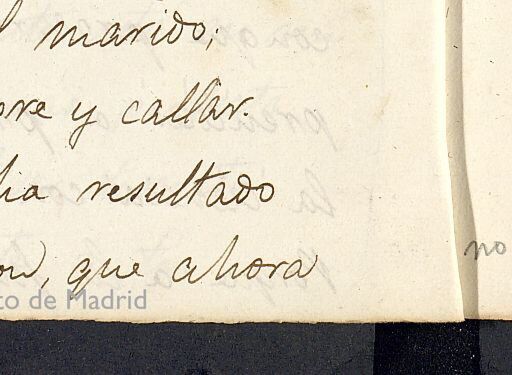 marido;
y callar.
resultado
que ahora
no
to de Madrid